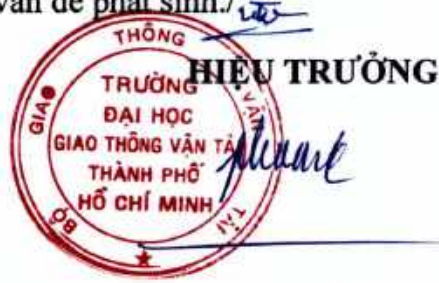 vấn đề phát sinh./.
HIỆU TRƯỞNG
BỘ GIAO THÔNG VẬN TẢI
TRƯỜNG
ĐẠI HỌC
GIAO THÔNG VẬN TẢI
THÀNH PHỐ
HỒ CHÍ MINH